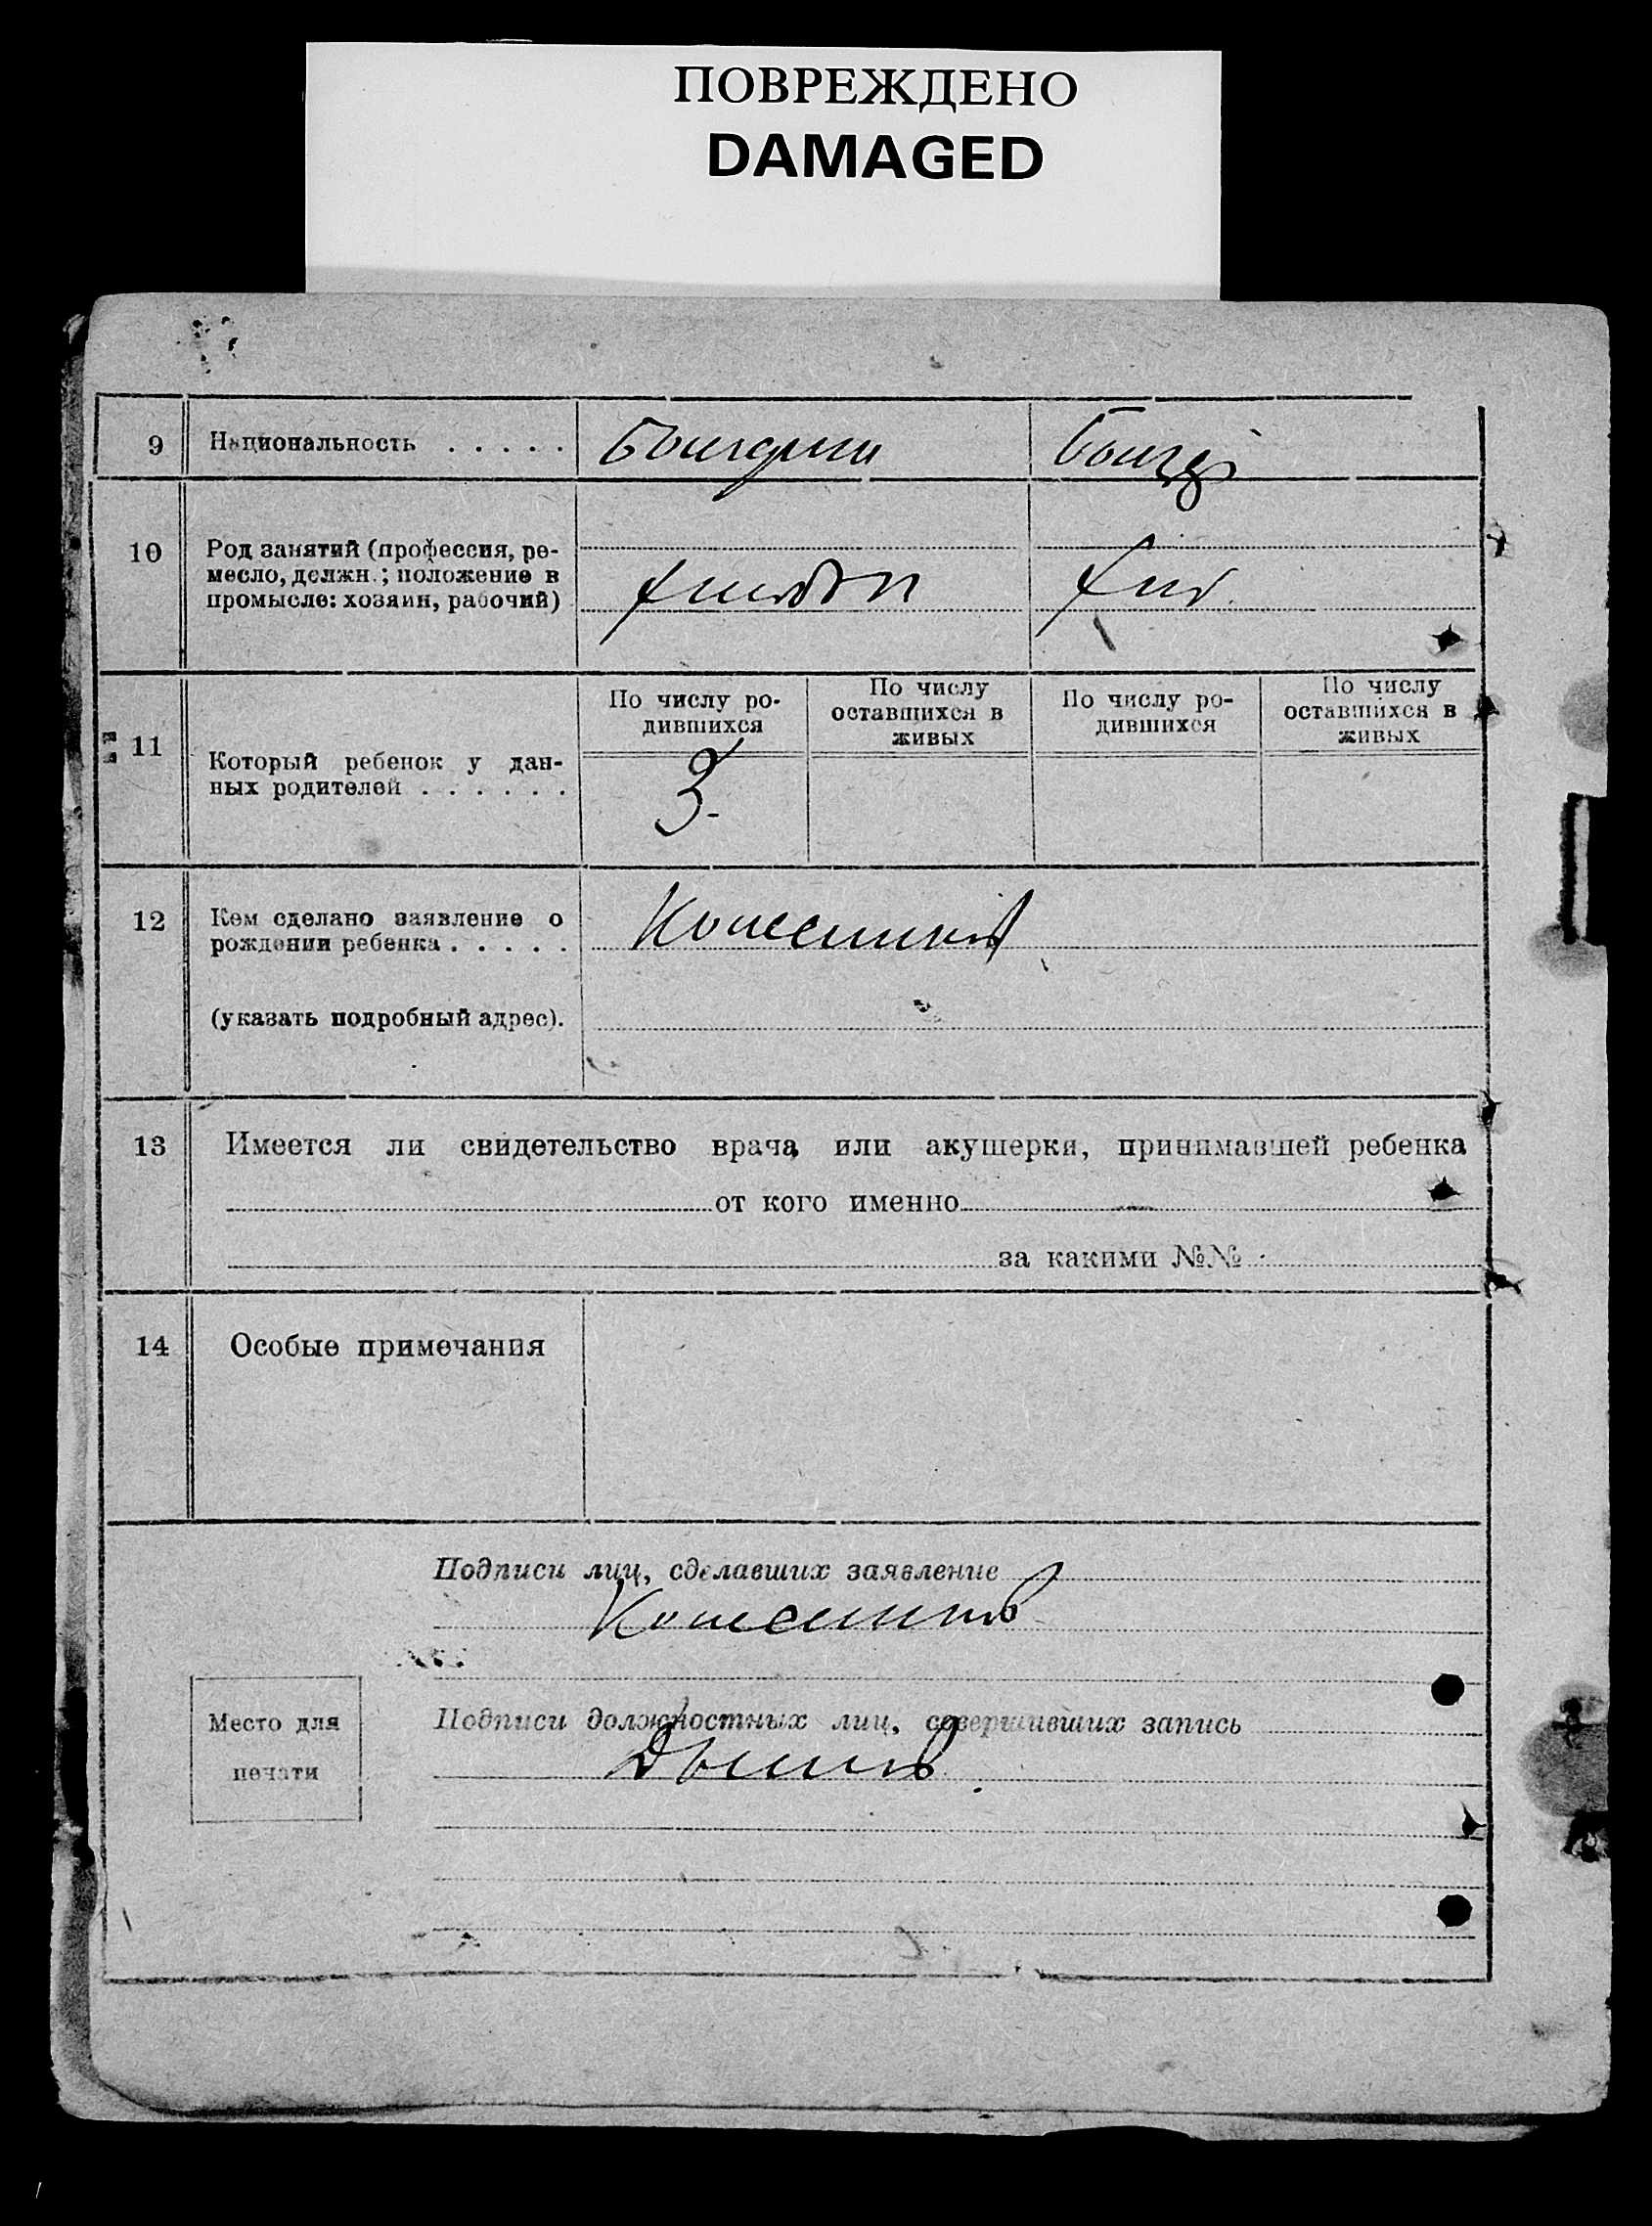 ПОВРЕЖДЕНО
DAMAGED
9 Национальность . . . . .
10 Род занятий (профессия, ре-
месло, должн.; положение в
промысле: хозяин, рабочий)
По числу ро-
дившихся
По числу
оставшихся в
живых
По числу ро-
дившихся
По числу
оставшихся в
живых
11 Который ребенок у дан-
ных родителей . . . . . .
3
12 Кем сделано заявление о
рождении ребенка . . . . .
(указать подробный адрес).
13 Имеется ли свидетельство врача или акушерки, принимавшей ребенка
от кого именно
за какими №№
14 Особые примечания
Подписи лиц, сделавших заявление
Место для
печати
Подписи должностных лиц, совершивших запись